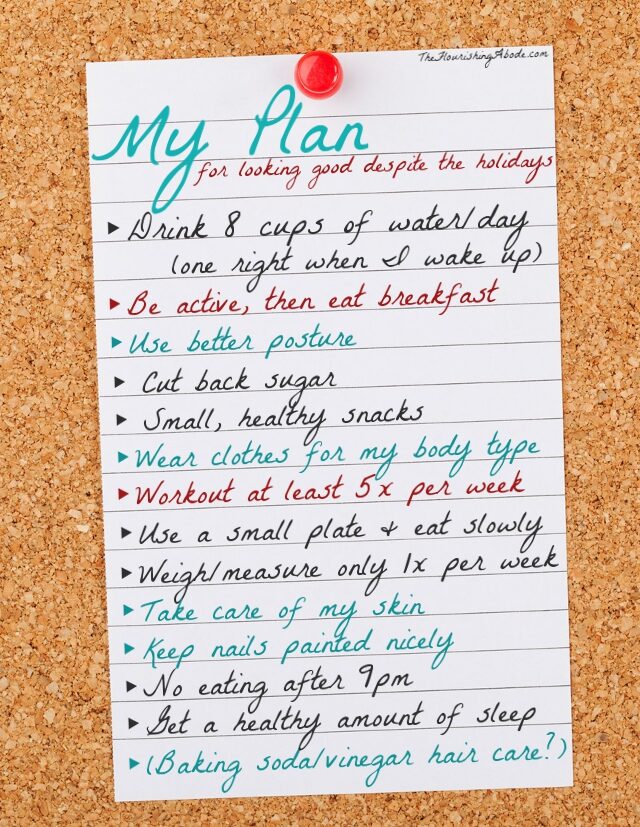 TheFlourishingAbode.com
My Plan
for looking good despite the holidays
▸ Drink 8 cups of water/day
(one right when I wake up)
▸ Be active, then eat breakfast
▸ Use better posture
▸ Cut back sugar
▸ Small, healthy snacks
▸ Wear clothes for my body type
▸ Workout at least 5x per week
▸ Use a small plate & eat slowly
▸ Weigh/measure only 1x per week
▸ Take care of my skin
▸ Keep nails painted nicely
▸ No eating after 9pm
▸ Get a healthy amount of sleep
▸ (Baking soda/vinegar hair care?)